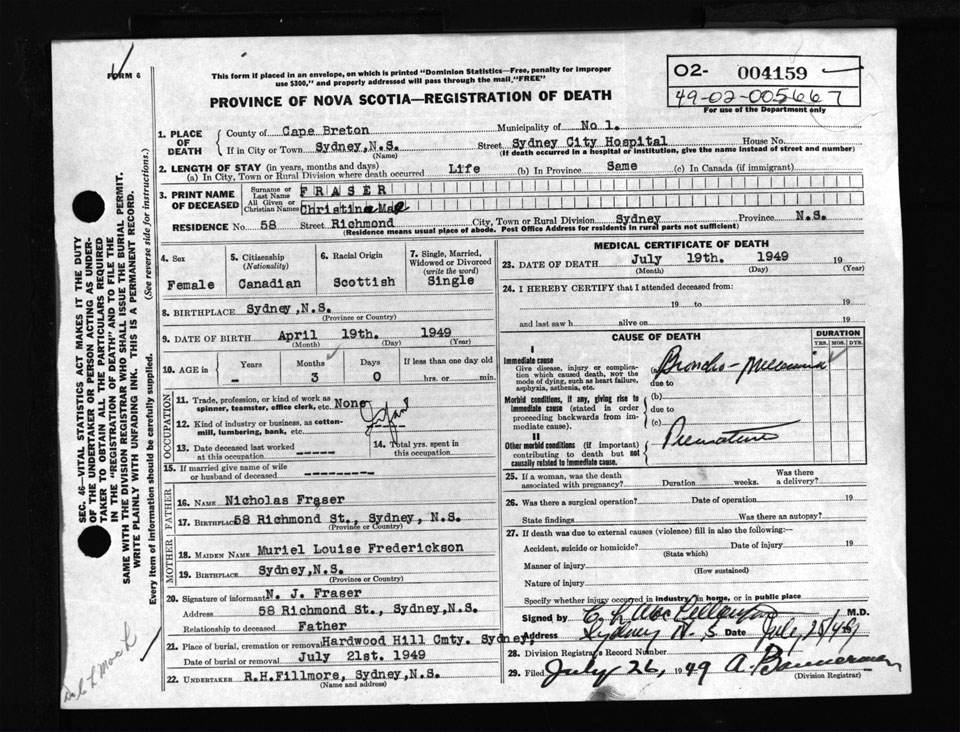 FORM 6
This form if placed in an envelope, on which is printed "Dominion Statistics—Free, penalty for improper
use $300," and properly addressed will pass through the mail, "FREE"
PROVINCE OF NOVA SCOTIA—REGISTRATION OF DEATH
02- 004159
49-02-005667
For use of the Department only
SEC. 46—VITAL STATISTICS ACT MAKES IT THE DUTY
OF THE UNDERTAKER OR PERSON ACTING AS UNDER-
TAKER TO OBTAIN ALL THE PARTICULARS REQUIRED
IN THE "REGISTRATION OF DEATH" AND TO FILE THE
SAME WITH THE DIVISION REGISTRAR WHO SHALL ISSUE THE BURIAL PERMIT.
WRITE PLAINLY WITH UNFADING INK. THIS IS A PERMANENT RECORD.
Every item of information should be carefully supplied. (See reverse side for instructions.)
1. PLACE OF DEATH
County of Cape Breton Municipality of No 1.
If in City or Town Sydney, N.S. Street Sydney City Hospital House No.
(Name) (If death occurred in a hospital or institution, give the name instead of street and number)
2. LENGTH OF STAY (in years, months and days)
(a) In City, Town or Rural Division where death occurred Life (b) In Province Same (c) In Canada (if immigrant)
3. PRINT NAME OF DECEASED
Surname or Last Name FRASER
All Given or Christian Names Christina Mae
RESIDENCE No. 58 Street Richmond City, Town or Rural Division Sydney Province N.S.
(Residence means usual place of abode. Post Office Address for residents in rural parts not sufficient)
4. Sex Female
5. Citizenship (Nationality) Canadian
6. Racial Origin Scottish
7. Single, Married, Widowed or Divorced (write the word) Single
8. BIRTHPLACE Sydney, N.S.
(Province or Country)
9. DATE OF BIRTH April 19th. 1949
(Month) (Day) (Year)
10. AGE in Years Months Days If less than one day old
- 3 0 hrs. or min.
OCCUPATION
11. Trade, profession, or kind of work as
spinner, teamster, office clerk, etc. None
12. Kind of industry or business, as cotton-
mill, lumbering, bank, etc.
13. Date deceased last worked at this occupation
14. Total yrs. spent in this occupation
15. If married give name of wife
or husband of deceased
FATHER
16. NAME Nicholas Fraser
17. BIRTHPLACE 58 Richmond St., Sydney, N.S.
(Province or Country)
MOTHER
18. MAIDEN NAME Muriel Louise Frederickson
19. BIRTHPLACE Sydney, N.S.
(Province or Country)
20. Signature of informant N. J. Fraser
Address 58 Richmond St., Sydney, N.S.
Relationship to deceased Father
21. Place of burial, cremation or removal Hardwood Hill Cmty. Sydney,
Date of burial or removal July 21st. 1949
22. UNDERTAKER R.H.Fillmore, Sydney, N.S.
(Name and address)
MEDICAL CERTIFICATE OF DEATH
23. DATE OF DEATH July 19th. 1949 19
(Month) (Day) (Year)
24. I HEREBY CERTIFY that I attended deceased from:
19 to 19
and last saw h alive on 19
CAUSE OF DEATH
DURATION
YRS. MOS. DYS.
I
Immediate cause
Give disease, injury or complica-
tion which caused death, NOT the
mode of dying, such as heart failure,
asphyxia, asthenia, etc.
(a) Broncho-
due to
Morbid conditions, if any, giving rise to
immediate cause (stated in order
proceeding backwards from im-
mediate cause).
(b)
due to
(c)
II
Other morbid conditions (if important)
contributing to death but not
causally related to immediate cause.
Premature
25. If a woman, was the death
associated with pregnancy? Duration weeks. Was there a delivery?
26. Was there a surgical operation? Date of operation 19
State findings Was there an autopsy?
27. If death was due to external causes (violence) fill in also the following:—
Accident, suicide or homicide? Date of injury 19
(State which)
Manner of injury
(How sustained)
Nature of injury
Specify whether injury occurred in industry, in home, or in public place
Signed by M.D.
Address Sydney N.S Date July
28. Division Registrar's Record Number
29. Filed July 26, 1949 A. Bannerman
(Division Registrar)